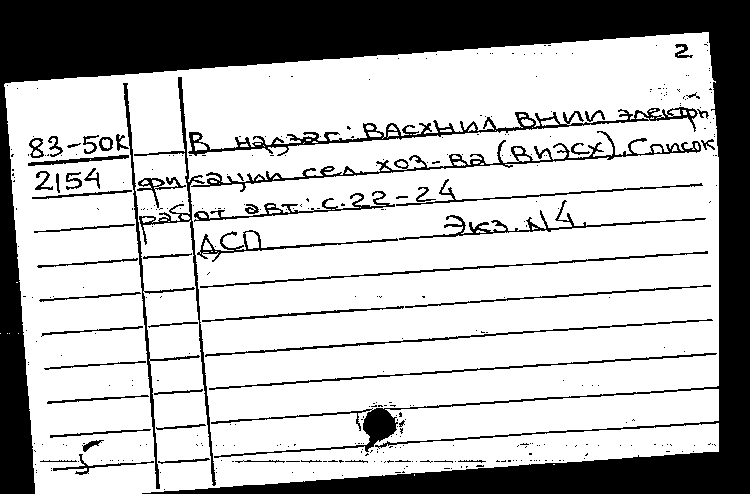 2
83-50к
2154
В надзаг.: ВАСХНИЛ, ВНИИ электри
фикации сел. хоз-ва (ВИЭСХ). Список
работ авт.: с.22-24
ДСП Экз. N4.
5